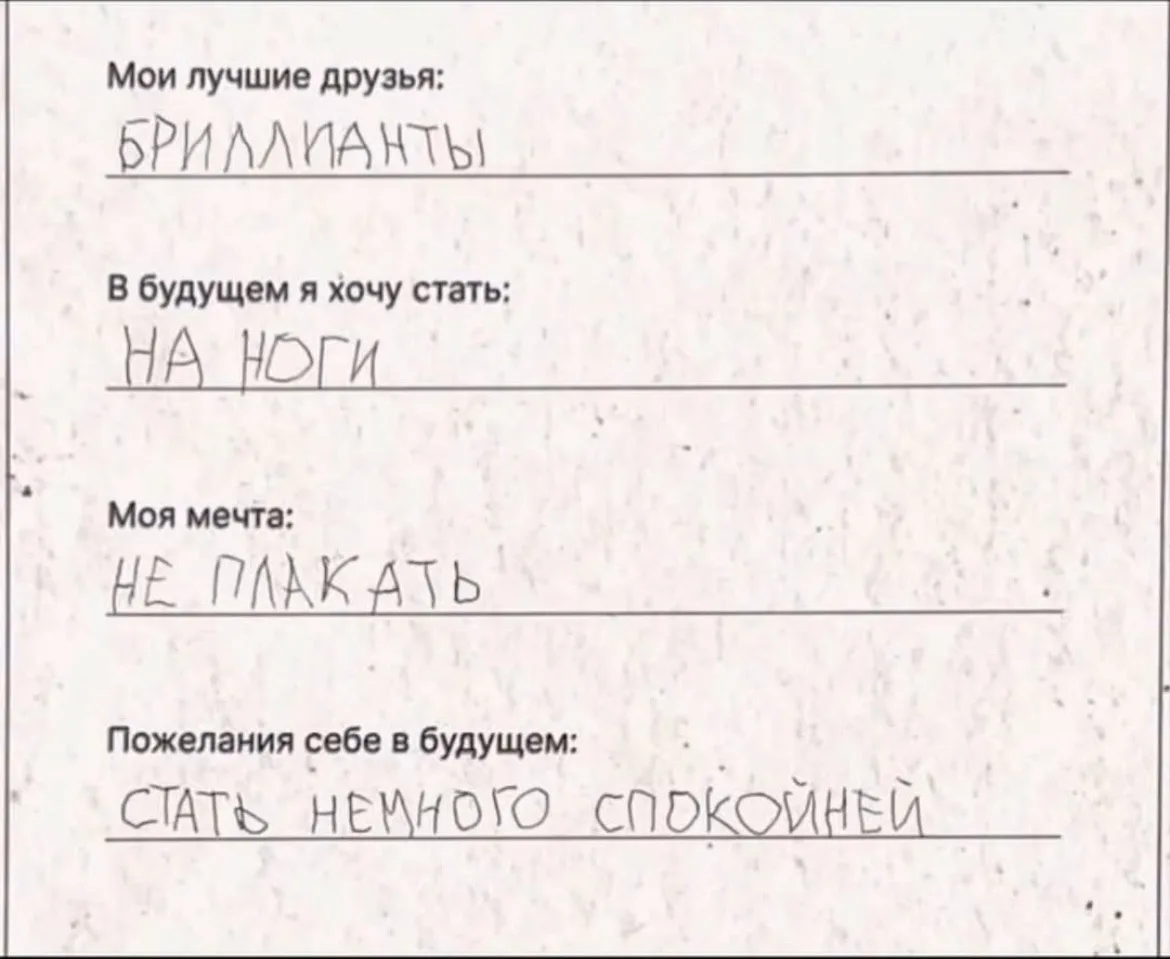 Мои лучшие друзья:
БРИЛЛИАНТЫ
В будущем я хочу стать:
НА НОГИ
Моя мечта:
НЕ ПЛАКАТЬ
Пожелания себе в будущем:
СТАТЬ НЕМНОГО СПОКОЙНЕЙ